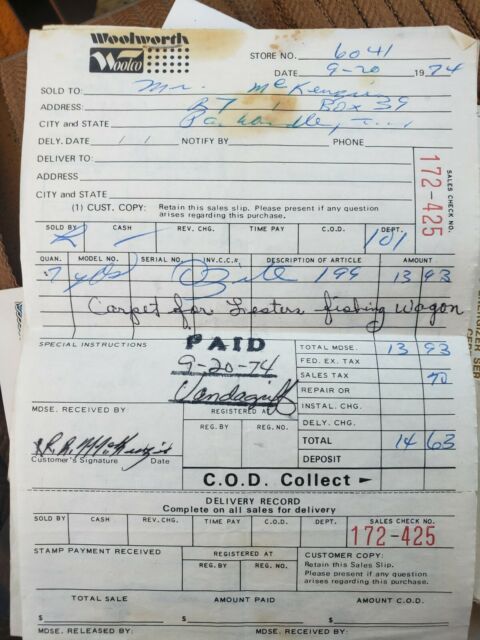 Woolworth
Woolco
STORE NO. 6041
DATE 9-20 1974
SOLD TO: Mr. McKenzie
ADDRESS: RT 1 Box 39
CITY AND STATE
DELY. DATE / / NOTIFY BY PHONE
DELIVER TO:
ADDRESS
CITY AND STATE
SALES CHECK NO.
172-425
(1) CUST. COPY: Retain this sales slip. Please present if any question
arises regarding this purchase.
SOLD BY CASH REV. CHG. TIME PAY C.O.D. DEPT. 101
QUAN. MODEL NO. SERIAL NO. INV.C.C.# DESCRIPTION OF ARTICLE AMOUNT
7 yds 199 13 93
Carpet for Lesters fishing Wagon
SPECIAL INSTRUCTIONS
PAID
9-20-74
Vandagriff
TOTAL MDSE. 13 93
FED. EX. TAX
SALES TAX 70
REPAIR OR
INSTAL. CHG.
DELY. CHG.
TOTAL 14 63
DEPOSIT
REGISTERED AT
REG. BY REG. NO.
MDSE. RECEIVED BY:
Customer's Signature Date
C.O.D. Collect
DELIVERY RECORD
Complete on all sales for delivery
SOLD BY CASH REV. CHG. TIME PAY C.O.D. DEPT. SALES CHECK NO.
172-425
STAMP PAYMENT RECEIVED
REGISTERED AT
REG. BY REG. NO.
CUSTOMER COPY:
Retain this Sales Slip.
Please present if any question
arises regarding this purchase.
TOTAL SALE AMOUNT PAID AMOUNT C.O.D.
$ $ $
MDSE. RELEASED BY: MDSE. RECEIVED BY: